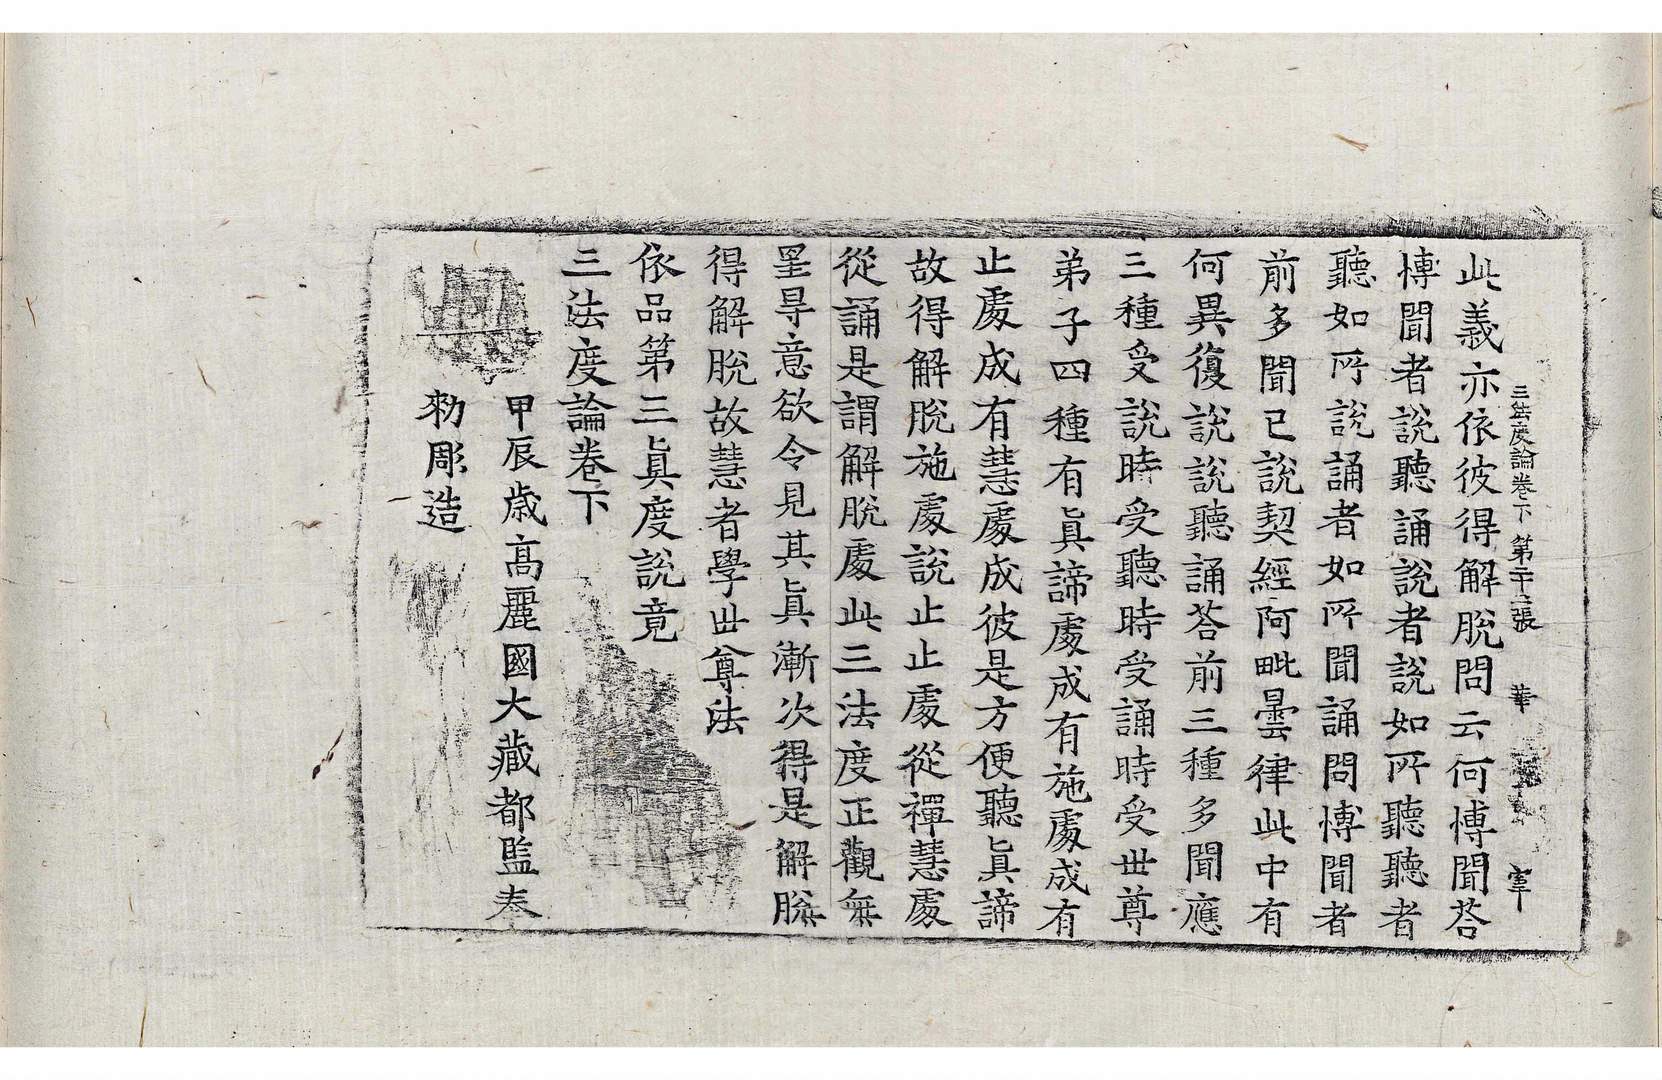 三法度論卷下　第二十二張　華
此義亦依彼得解脫問云何博聞荅
博聞者說聽誦說者說如所聽聽者
聽如所說誦者如所聞誦問博聞者
前多聞已說契經阿毗曇律此中有
何異復說說聽誦荅前三種多聞應
三種受說時受聽時受誦時受世尊
弟子四種有眞諦處成有施處成有
止處成有慧處成彼是方便聽眞諦
故得解脫施處說止止處從禪慧處
從誦是謂解脫處此三法度正觀無
罣㝵意欲令見其眞漸次得是解脫
得解脫故慧者學世尊法
依品第三眞度說竟
三法度論卷下
甲辰歲高麗國大藏都監奉
勑彫造